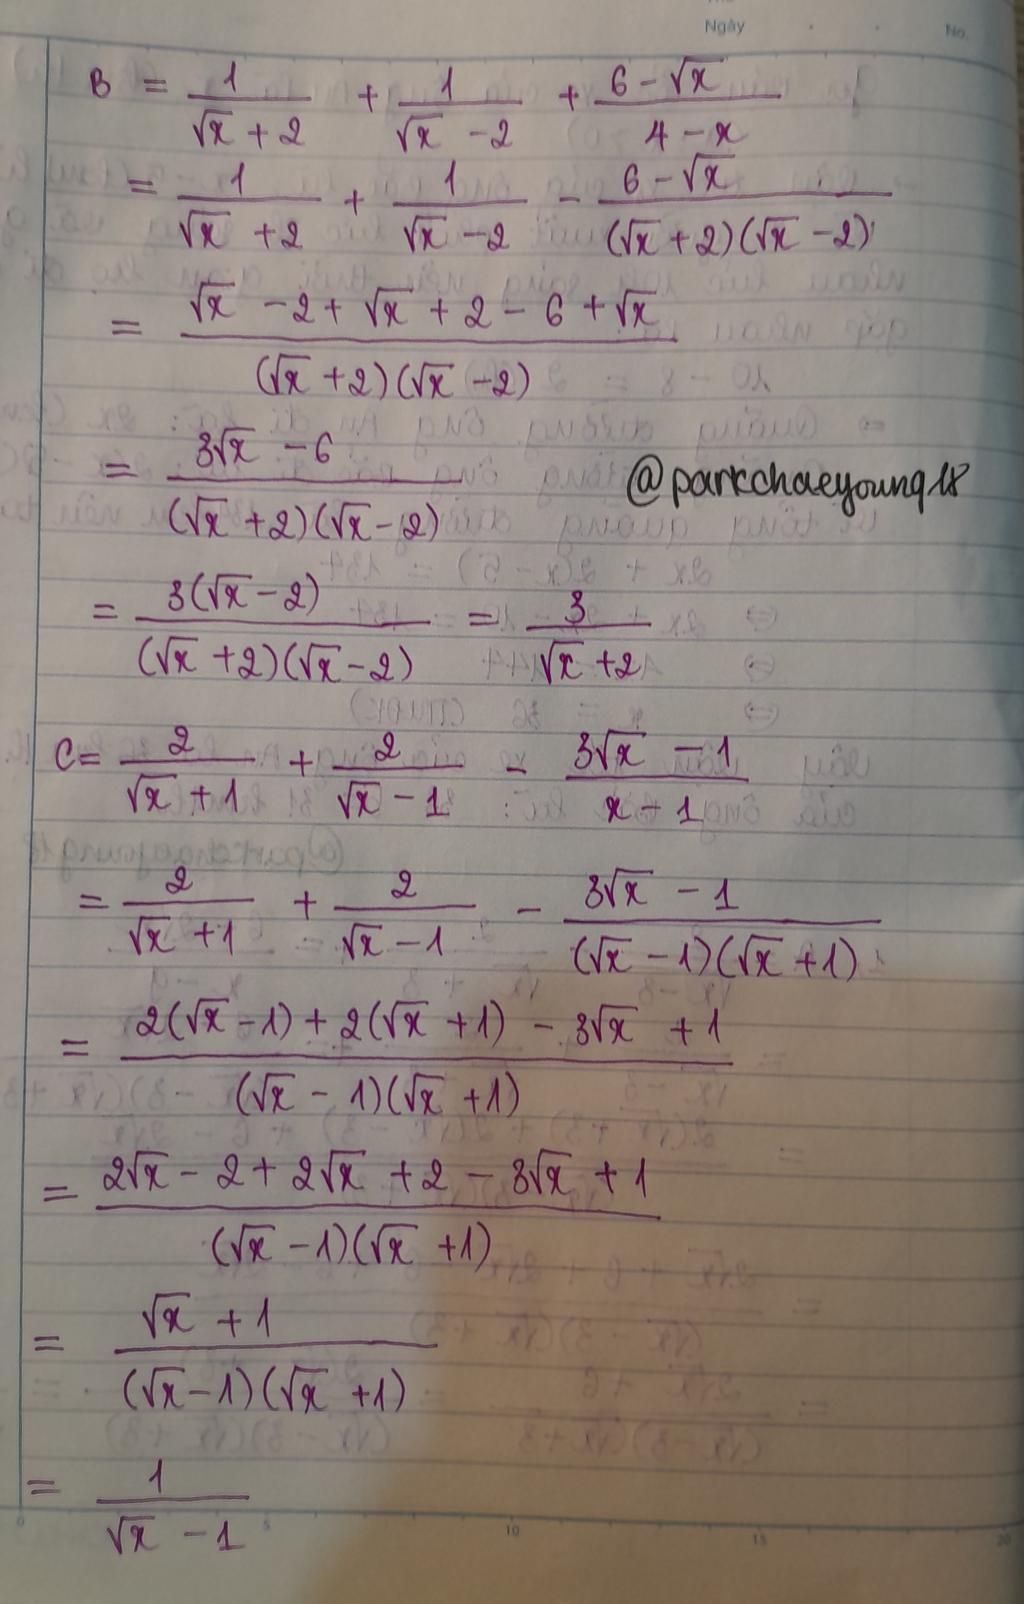 Ngày No.
B = \frac{1}{\sqrt{x} + 2} + \frac{1}{\sqrt{x} - 2} + \frac{6 - \sqrt{x}}{4 - x}
= \frac{1}{\sqrt{x} + 2} + \frac{1}{\sqrt{x} - 2} - \frac{6 - \sqrt{x}}{(\sqrt{x} + 2)(\sqrt{x} - 2)}
= \frac{\sqrt{x} - 2 + \sqrt{x} + 2 - 6 + \sqrt{x}}{(\sqrt{x} + 2)(\sqrt{x} - 2)}
= \frac{3\sqrt{x} - 6}{(\sqrt{x} + 2)(\sqrt{x} - 2)}
@parkchaeyoung18
= \frac{3(\sqrt{x} - 2)}{(\sqrt{x} + 2)(\sqrt{x} - 2)} = \frac{3}{\sqrt{x} + 2}
C = \frac{2}{\sqrt{x} + 1} + \frac{2}{\sqrt{x} - 1} - \frac{3\sqrt{x} - 1}{x - 1}
= \frac{2}{\sqrt{x} + 1} + \frac{2}{\sqrt{x} - 1} - \frac{3\sqrt{x} - 1}{(\sqrt{x} - 1)(\sqrt{x} + 1)}
= \frac{2(\sqrt{x} - 1) + 2(\sqrt{x} + 1) - 3\sqrt{x} + 1}{(\sqrt{x} - 1)(\sqrt{x} + 1)}
= \frac{2\sqrt{x} - 2 + 2\sqrt{x} + 2 - 3\sqrt{x} + 1}{(\sqrt{x} - 1)(\sqrt{x} + 1)}
= \frac{\sqrt{x} + 1}{(\sqrt{x} - 1)(\sqrt{x} + 1)}
= \frac{1}{\sqrt{x} - 1}
0 5 10 15 20